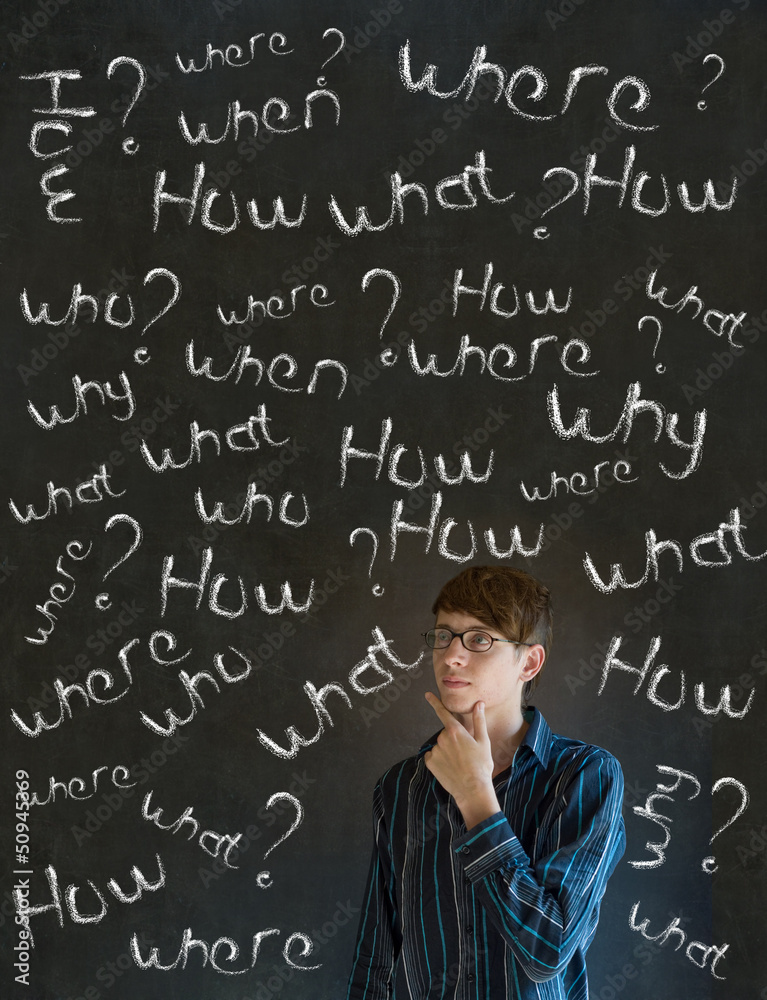 where ?
where ?
How ?
when
How what ? How
who ? where ? How what ?
when where
why
what How why
what who where
where ? How ? How what
where who what How
where what ? why ?
How
where what
Adobe Stock | #50945369